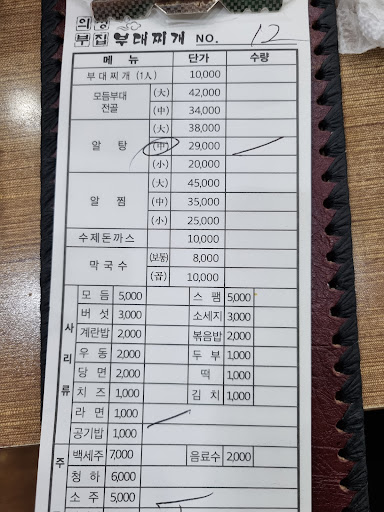 의정
부집 부대찌개 NO. 12
메 뉴 단가 수량
부대찌개 (1人) 10,000
모듬부대 전골 (大) 42,000
(中) 34,000
알 탕 (大) 38,000
(中) 29,000
(小) 20,000
알 찜 (大) 45,000
(中) 35,000
(小) 25,000
수제돈까스 10,000
막국수 (보통) 8,000
(곱) 10,000
사리류
모 듬 5,000 스 팸 5,000
버 섯 3,000 소세지 3,000
계란밥 2,000 볶음밥 2,000
우 동 2,000 두 부 1,000
당 면 2,000 떡 1,000
치 즈 1,000 김 치 1,000
라 면 1,000
공기밥 1,000
주 백세주 7,000 음료수 2,000
청 하 6,000
소 주 5,000